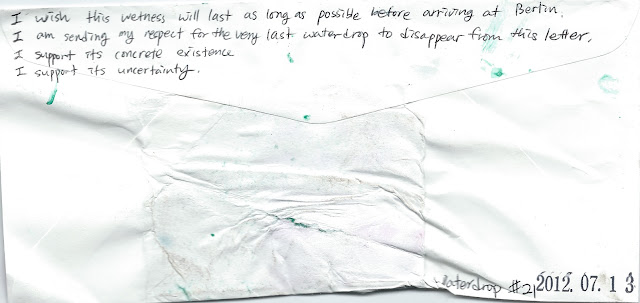 I wish this wetness will last as long as possible before arriving at Berlin.
I am sending my respect for the very last waterdrop to disappear from this letter.
I support its concrete existence
I support its uncertainty.
Waterdrop #21 2012. 07. 1 3